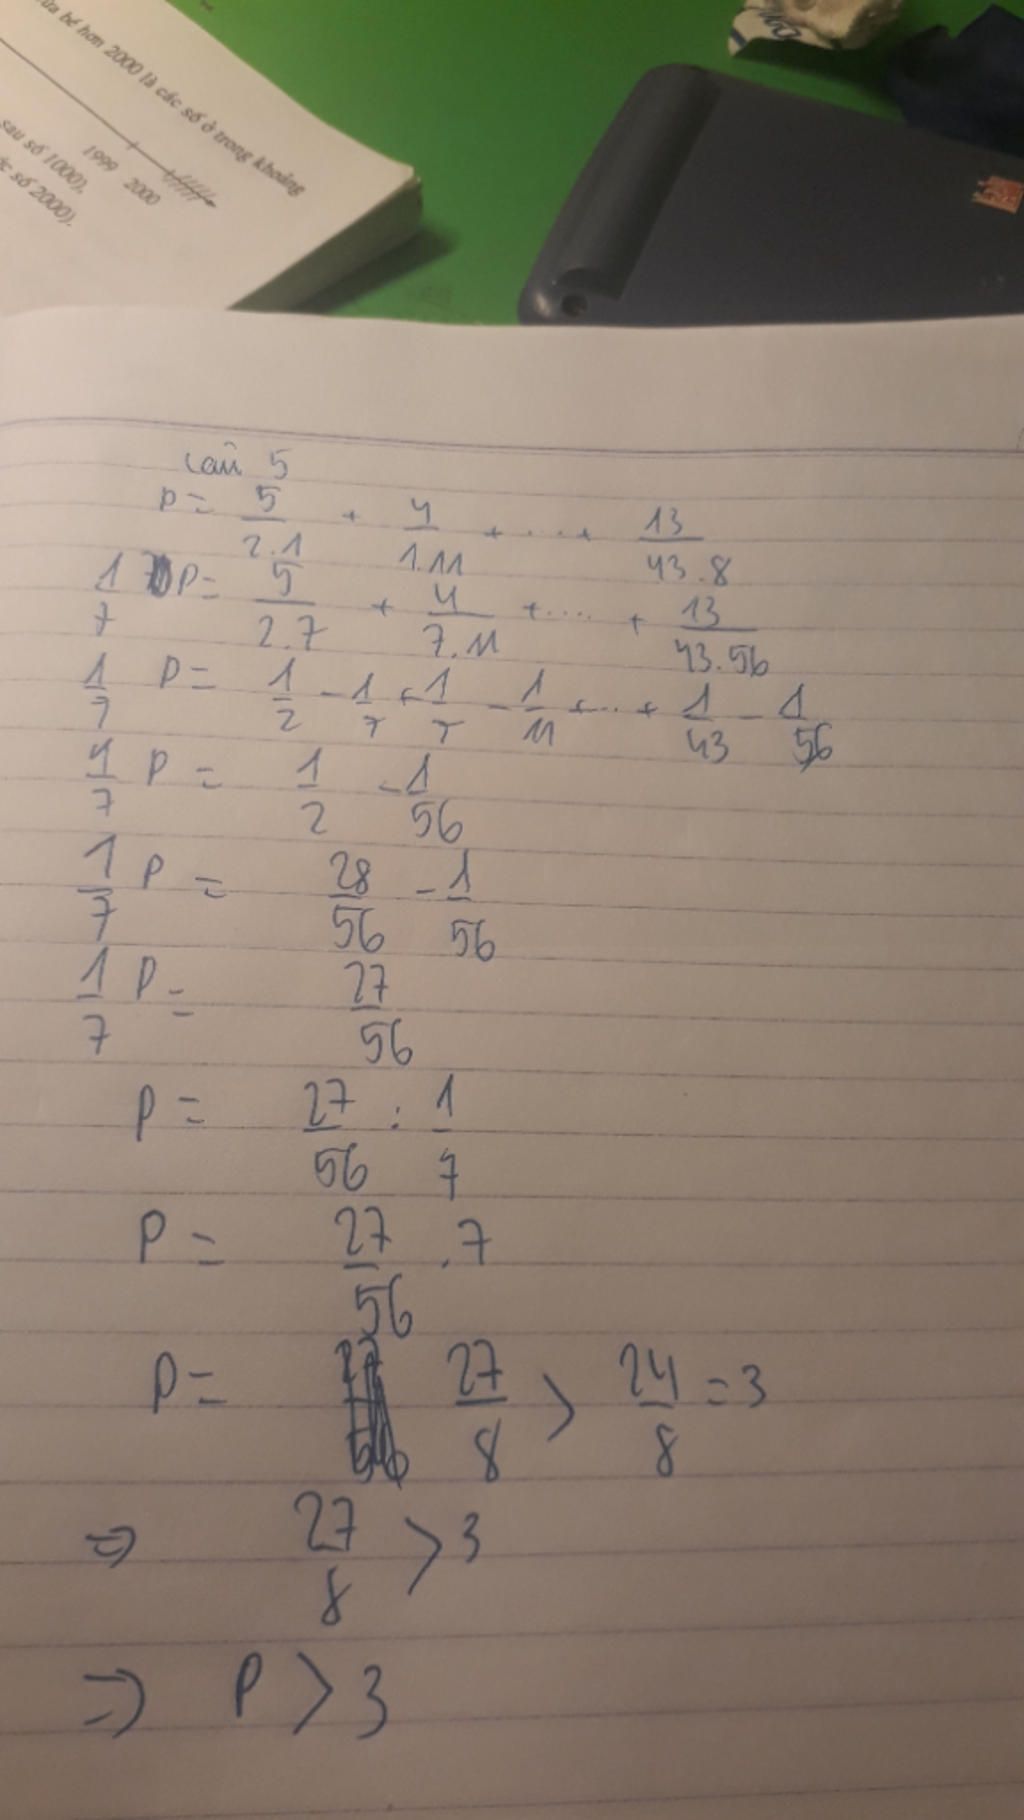 bé hơn 2000 là các số ở trong khoảng
1999 2000
sau số 1000),
số 2000).
Câu 5
P = 5/2.1 + 4/1.11 + .... + 13/43.8
1/7 P = 5/2.7 + 4/7.11 + .... + 13/43.56
1/7 P = 1/2 - 1/7 + 1/7 - 1/11 + ... + 1/43 - 1/56
1/7 P = 1/2 - 1/56
1/7 P = 28/56 - 1/56
1/7 P = 27/56
P = 27/56 : 1/7
P = 27/56 . 7
P = 27/8 > 24/8 = 3
⇒ 27/8 > 3
⇒ P > 3